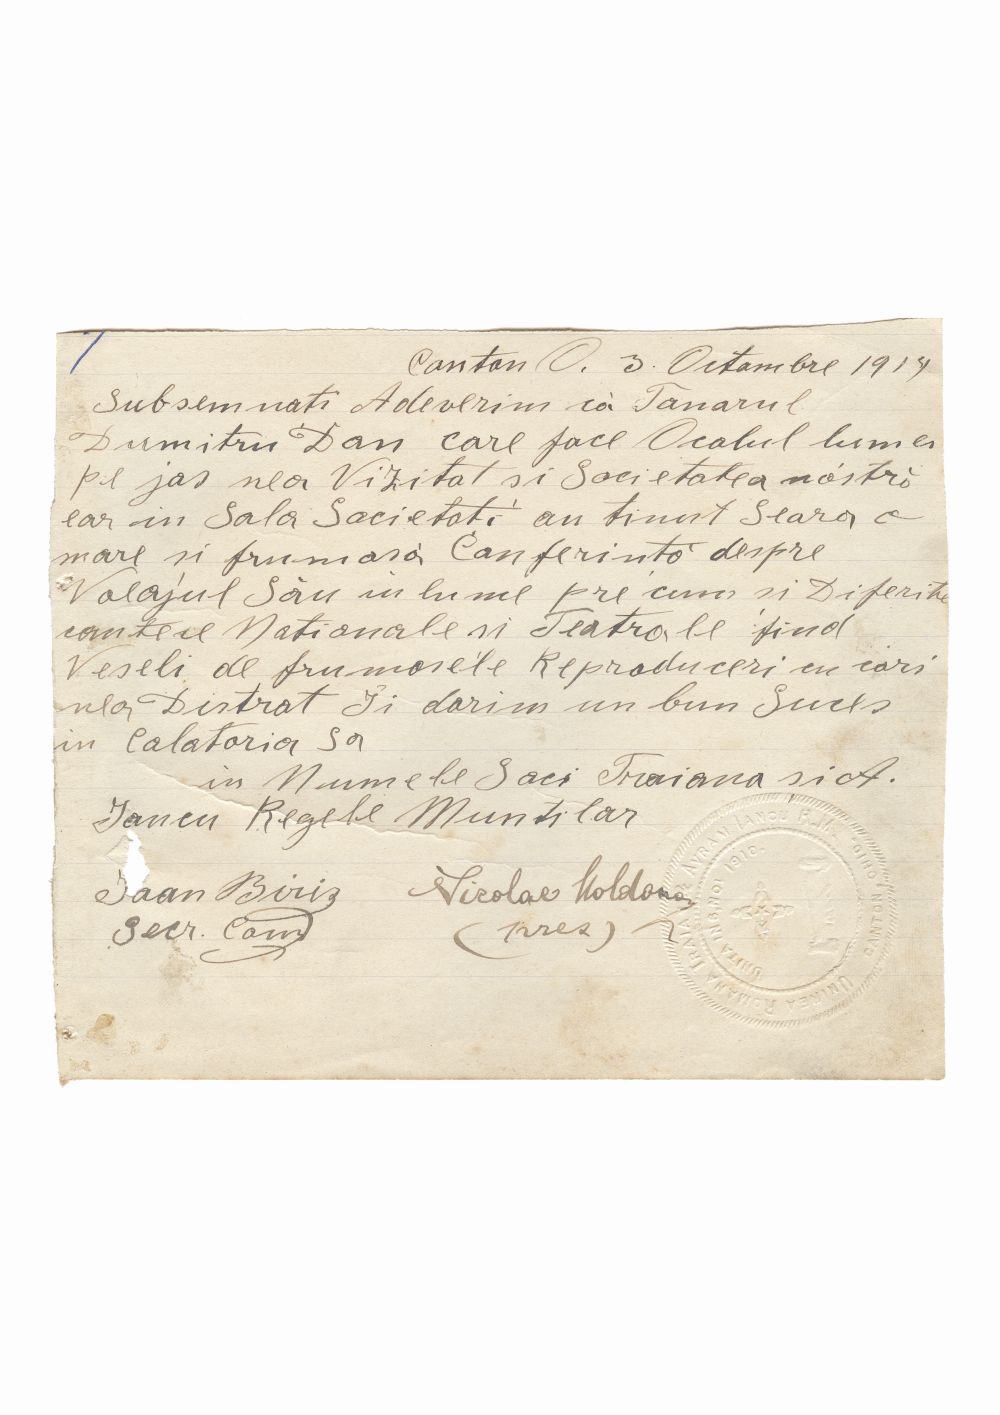 Canton O. 3. Octombre 1914
Subsemnati Adeverim cà Tanarul
Dumitru Dan care face Ocolul lumei
pe jos nea Vizitat si Societatea nóstrò
ear in Sala Societati au tinut Seara o
mare si frumasà Conferintò despre
Voeajul Sàu in lume pre cum si Diferite
cantece Nationale si Teatrale fiind
Veseli de frumosele Reproduceri cu cari
nea Distrat Ji dorim un bun Suces
in Calatoria Sa
in Numele Soci Traiana si A.
Iancu Regele Muntilor
Ioan Biriş
Secr. Com
Nicolae Moldova
(pres)
UNIREA ROMANA TRAIANA AVRAM IANCU R.M.
CANTON, OHIO
UNITA IN 6, NOI 1910.